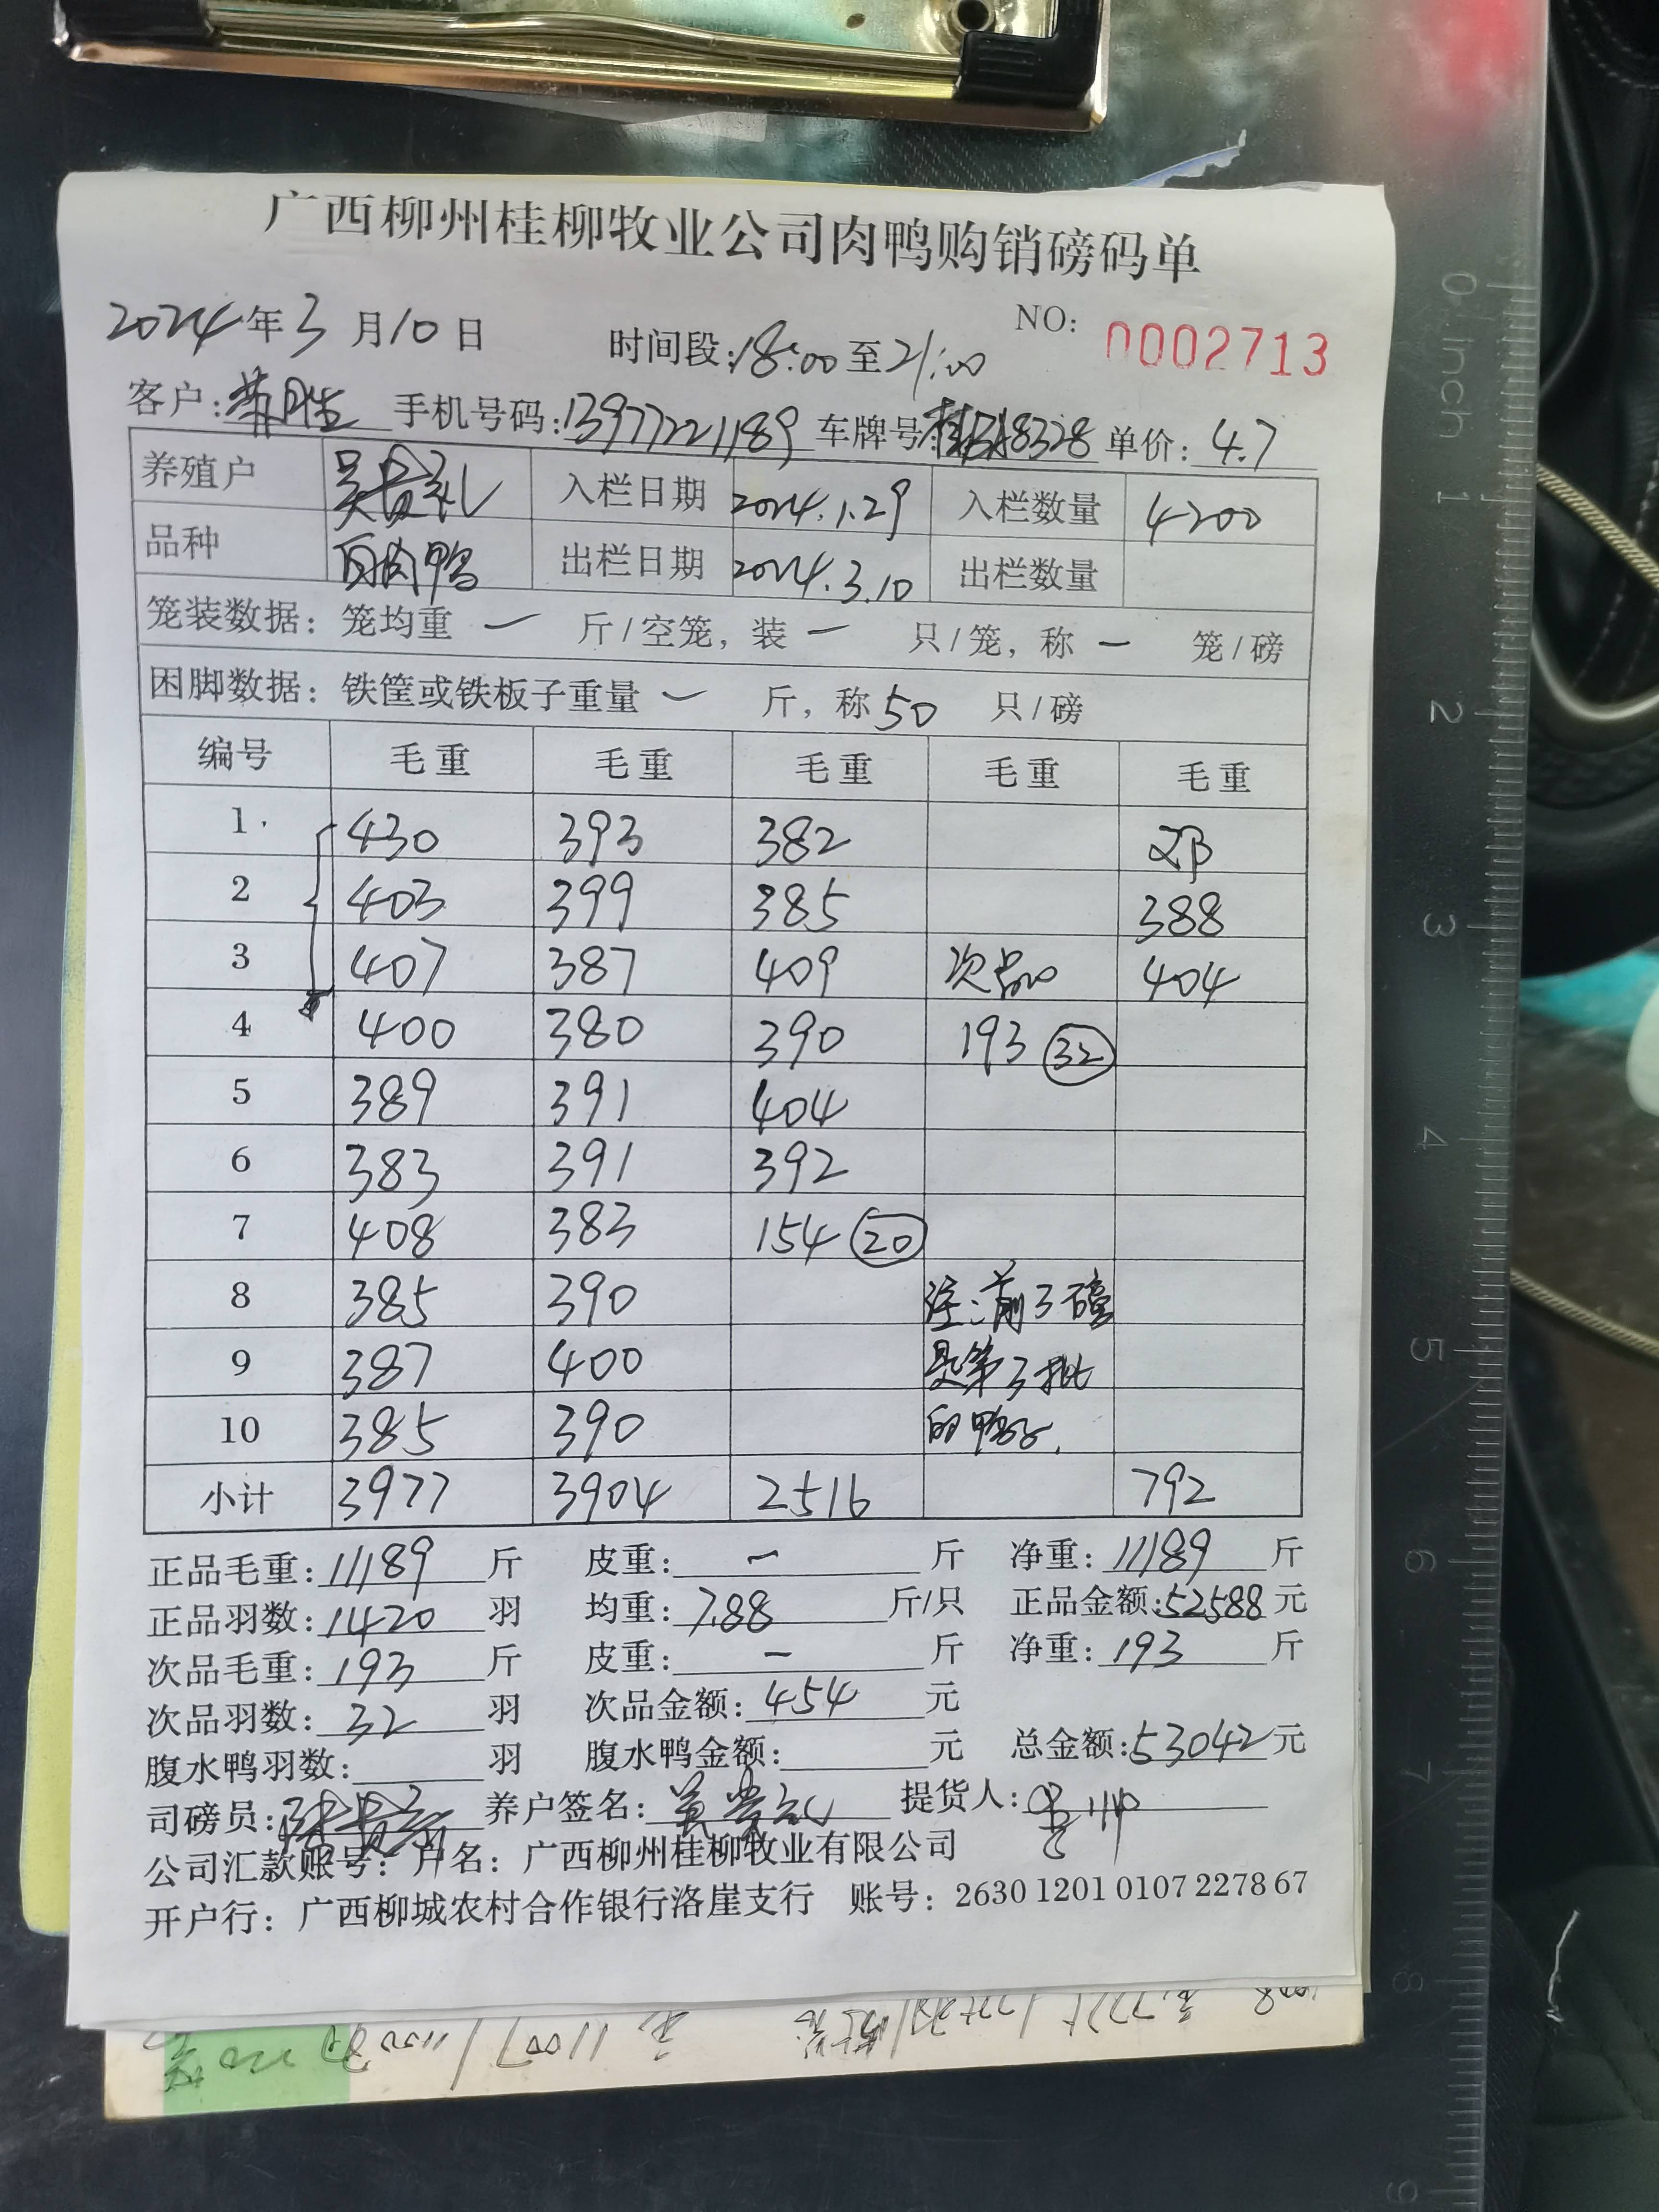 广西柳州桂柳牧业公司肉鸭购销磅码单
2024年3月10日 时间段:18:00至21:00 NO: 0002713
客户: 手机号码:13977221189 车牌号: 8328 单价: 4.7
养殖户 吴贵礼 入栏日期 2024.1.29 入栏数量 4200
品种 白肉鸭 出栏日期 2024.3.10 出栏数量
笼装数据: 笼均重 一 斤/空笼, 装 一 只/笼, 称 一 笼/磅
困脚数据: 铁筐或铁板子重量 一 斤, 称 50 只/磅
编号 毛重 毛重 毛重 毛重 毛重
1 430 393 382 邓
2 403 399 385 388
3 407 387 409 次品 404
4 400 380 390 193 32
5 389 391 404
6 383 391 392
7 408 383 154 20
8 385 390 注:前3磅
9 387 400 是第3批
10 385 390 的鸭子.
小计 3977 3904 2516 792
正品毛重: 11189 斤 皮重: 一 斤 净重: 11189 斤
正品羽数: 1420 羽 均重: 7.88 斤/只 正品金额: 52588 元
次品毛重: 193 斤 皮重: 一 斤 净重: 193 斤
次品羽数: 32 羽 次品金额: 454 元
腹水鸭羽数: 羽 腹水鸭金额: 元 总金额: 53042 元
司磅员: 养户签名: 提货人:
公司汇款账号: 户名: 广西柳州桂柳牧业有限公司
开户行: 广西柳城农村合作银行洛崖支行 账号: 2630 1201 0107 2278 67